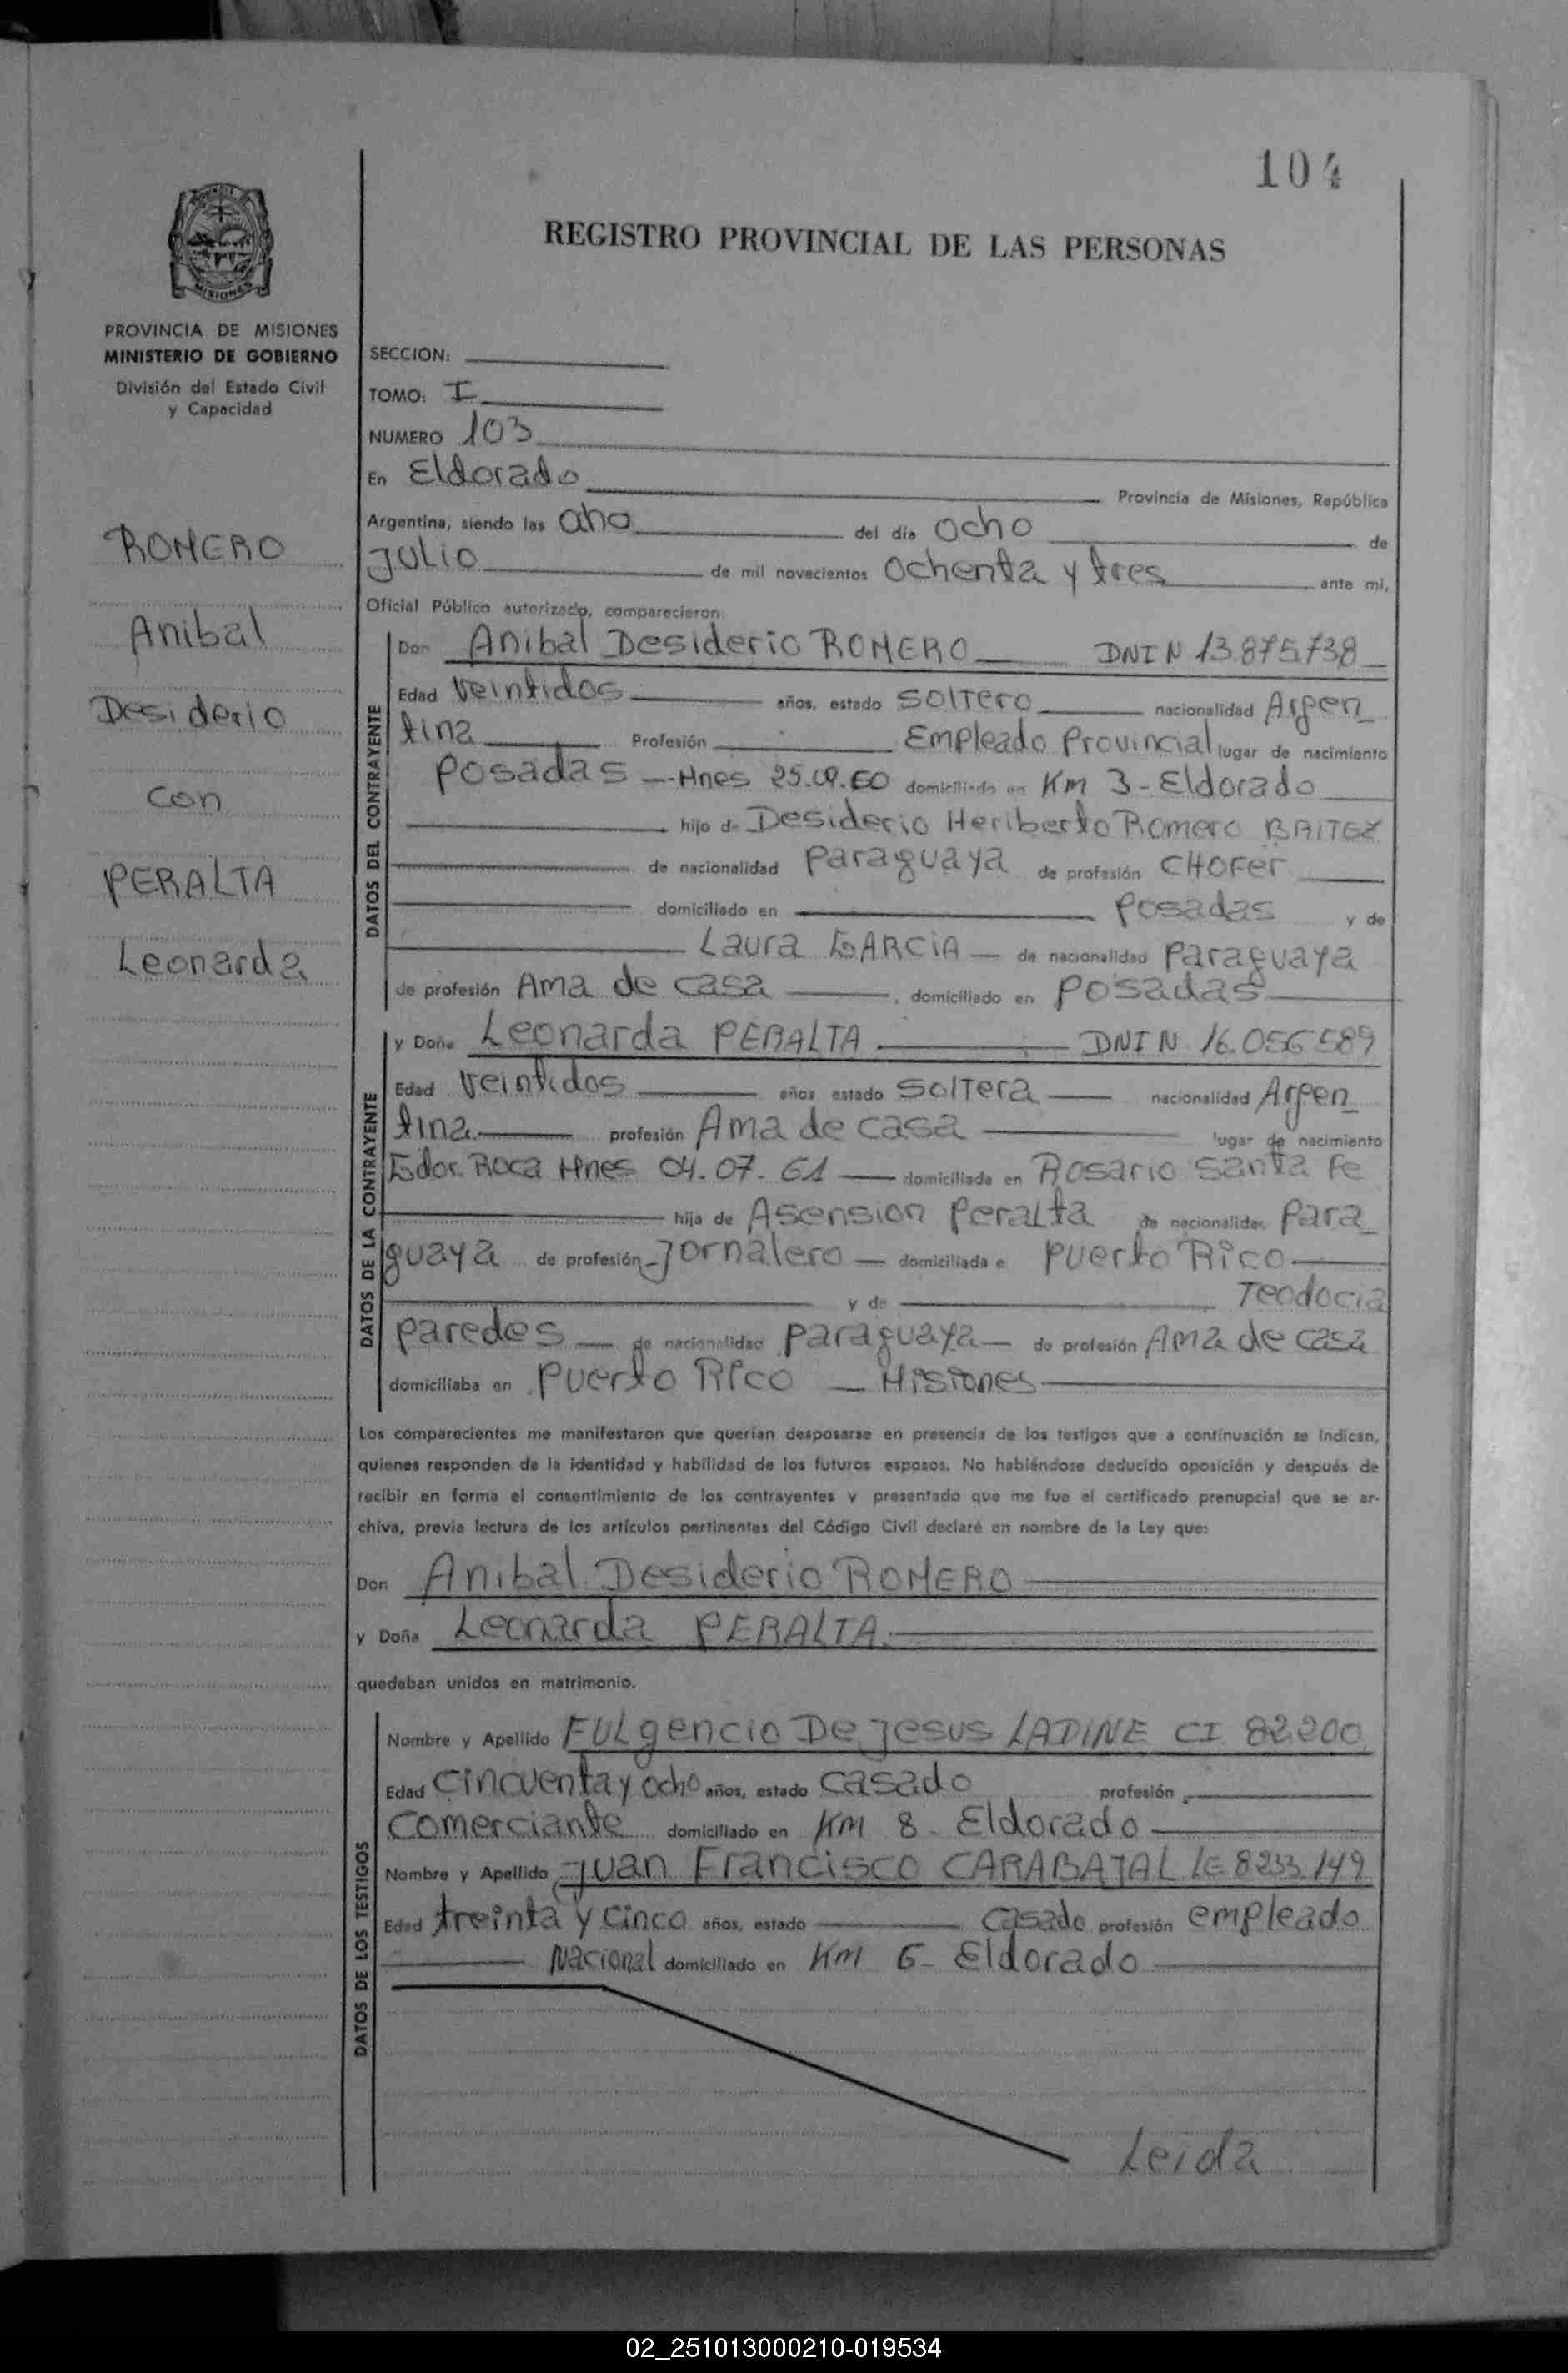 104
REGISTRO PROVINCIAL DE LAS PERSONAS
MISIONES
PROVINCIA DE MISIONES
MINISTERIO DE GOBIERNO
División del Estado Civil
y Capacidad
ROMERO
Anibal
Desiderio
con
PERALTA
Leonarda
SECCION:
TOMO: I
NUMERO 103
En Eldorado Provincia de Misiones, República
Argentina, siendo las del día ocho de
Julio de mil novecientos ochenta y tres ante mi,
Oficial Público autorizado, comparecieron:
DATOS DEL CONTRAYENTE
Don Anibal Desiderio ROMERO DNI N 13.875.738
Edad veintidos años, estado soltero nacionalidad Argen
tina Profesión Empleado Provincial lugar de nacimiento
Posadas - Mnes 25.09.60 domiciliado en Km 3 - Eldorado
hijo de Desiderio Heriberto Romero BAITEZ
de nacionalidad Paraguaya de profesión CHOFER
domiciliado en Posadas y de
Laura GARCIA de nacionalidad Paraguaya
de profesión Ama de casa, domiciliado en Posadas
DATOS DE LA CONTRAYENTE
y Doña Leonarda PERALTA DNI N 16.056.589
Edad veintidos años estado soltera nacionalidad Argen
tina profesión Ama de casa lugar de nacimiento
Gdor. Roca Mnes 04.07.61 domiciliada en Rosario Santa Fe
hija de Asension Peralta de nacionalidad Para
guaya de profesión Jornalero domiciliada e Puerto Rico
y de Teodocia
Paredes de nacionalidad Paraguaya de profesión Ama de casa
domiciliaba en Puerto Rico - Misiones
Los comparecientes me manifestaron que querían desposarse en presencia de los testigos que a continuación se indican,
quienes responden de la identidad y habilidad de los futuros esposos. No habiéndose deducido oposición y después de
recibir en forma el consentimiento de los contrayentes y presentado que me fue el certificado prenupcial que se ar-
chiva, previa lectura de los artículos pertinentes del Código Civil declaré en nombre de la Ley que:
Don Anibal Desiderio ROMERO
y Doña Leonarda PERALTA
quedaban unidos en matrimonio.
DATOS DE LOS TESTIGOS
Nombre y Apellido FULgencio De Jesus LADINE CI 82.200
Edad cincuenta y ocho años, estado casado profesión
comerciante domiciliado en KM 8 - Eldorado
Nombre y Apellido Juan Francisco CARABAJAL LE 8233.149
Edad treinta y cinco años, estado casado profesión empleado
Nacional domiciliado en KM 6 - Eldorado
Leida
02_251013000210-019534